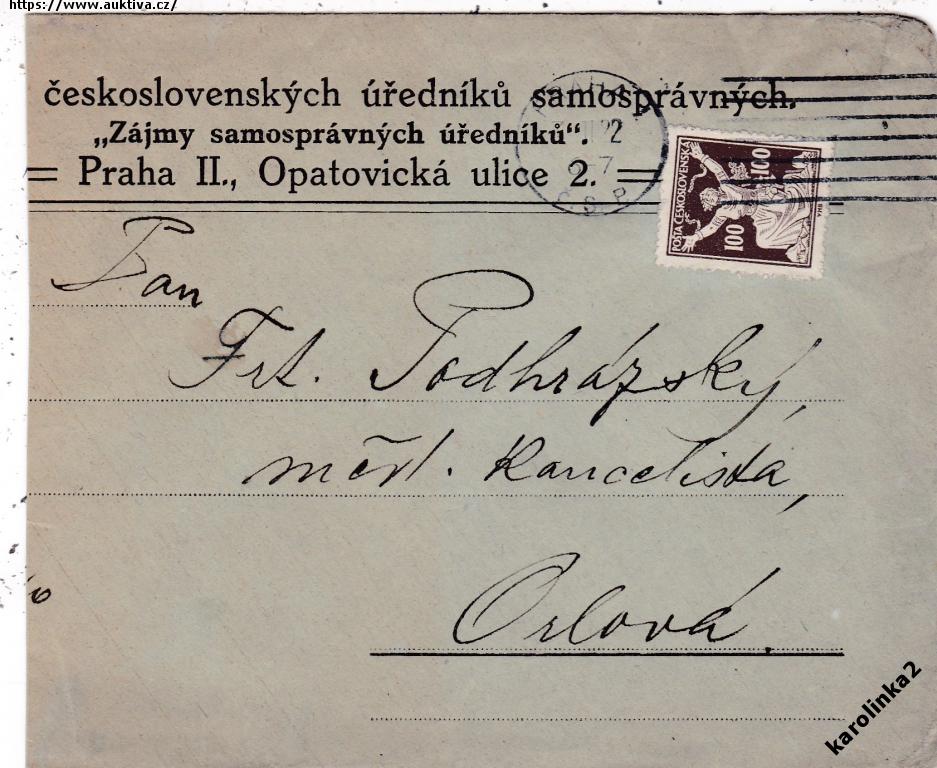 https://www.auktiva.cz/
československých úředníků samosprávných.
„Zájmy samosprávných úředníků“.
Praha II., Opatovická ulice 2.
22
7
Č. S. P.
POŠTA ČESKOSLOVENSKÁ
100
100
Pan
Frt. Podhrázský,
měst. kancelista,
Orlová
karolinka2